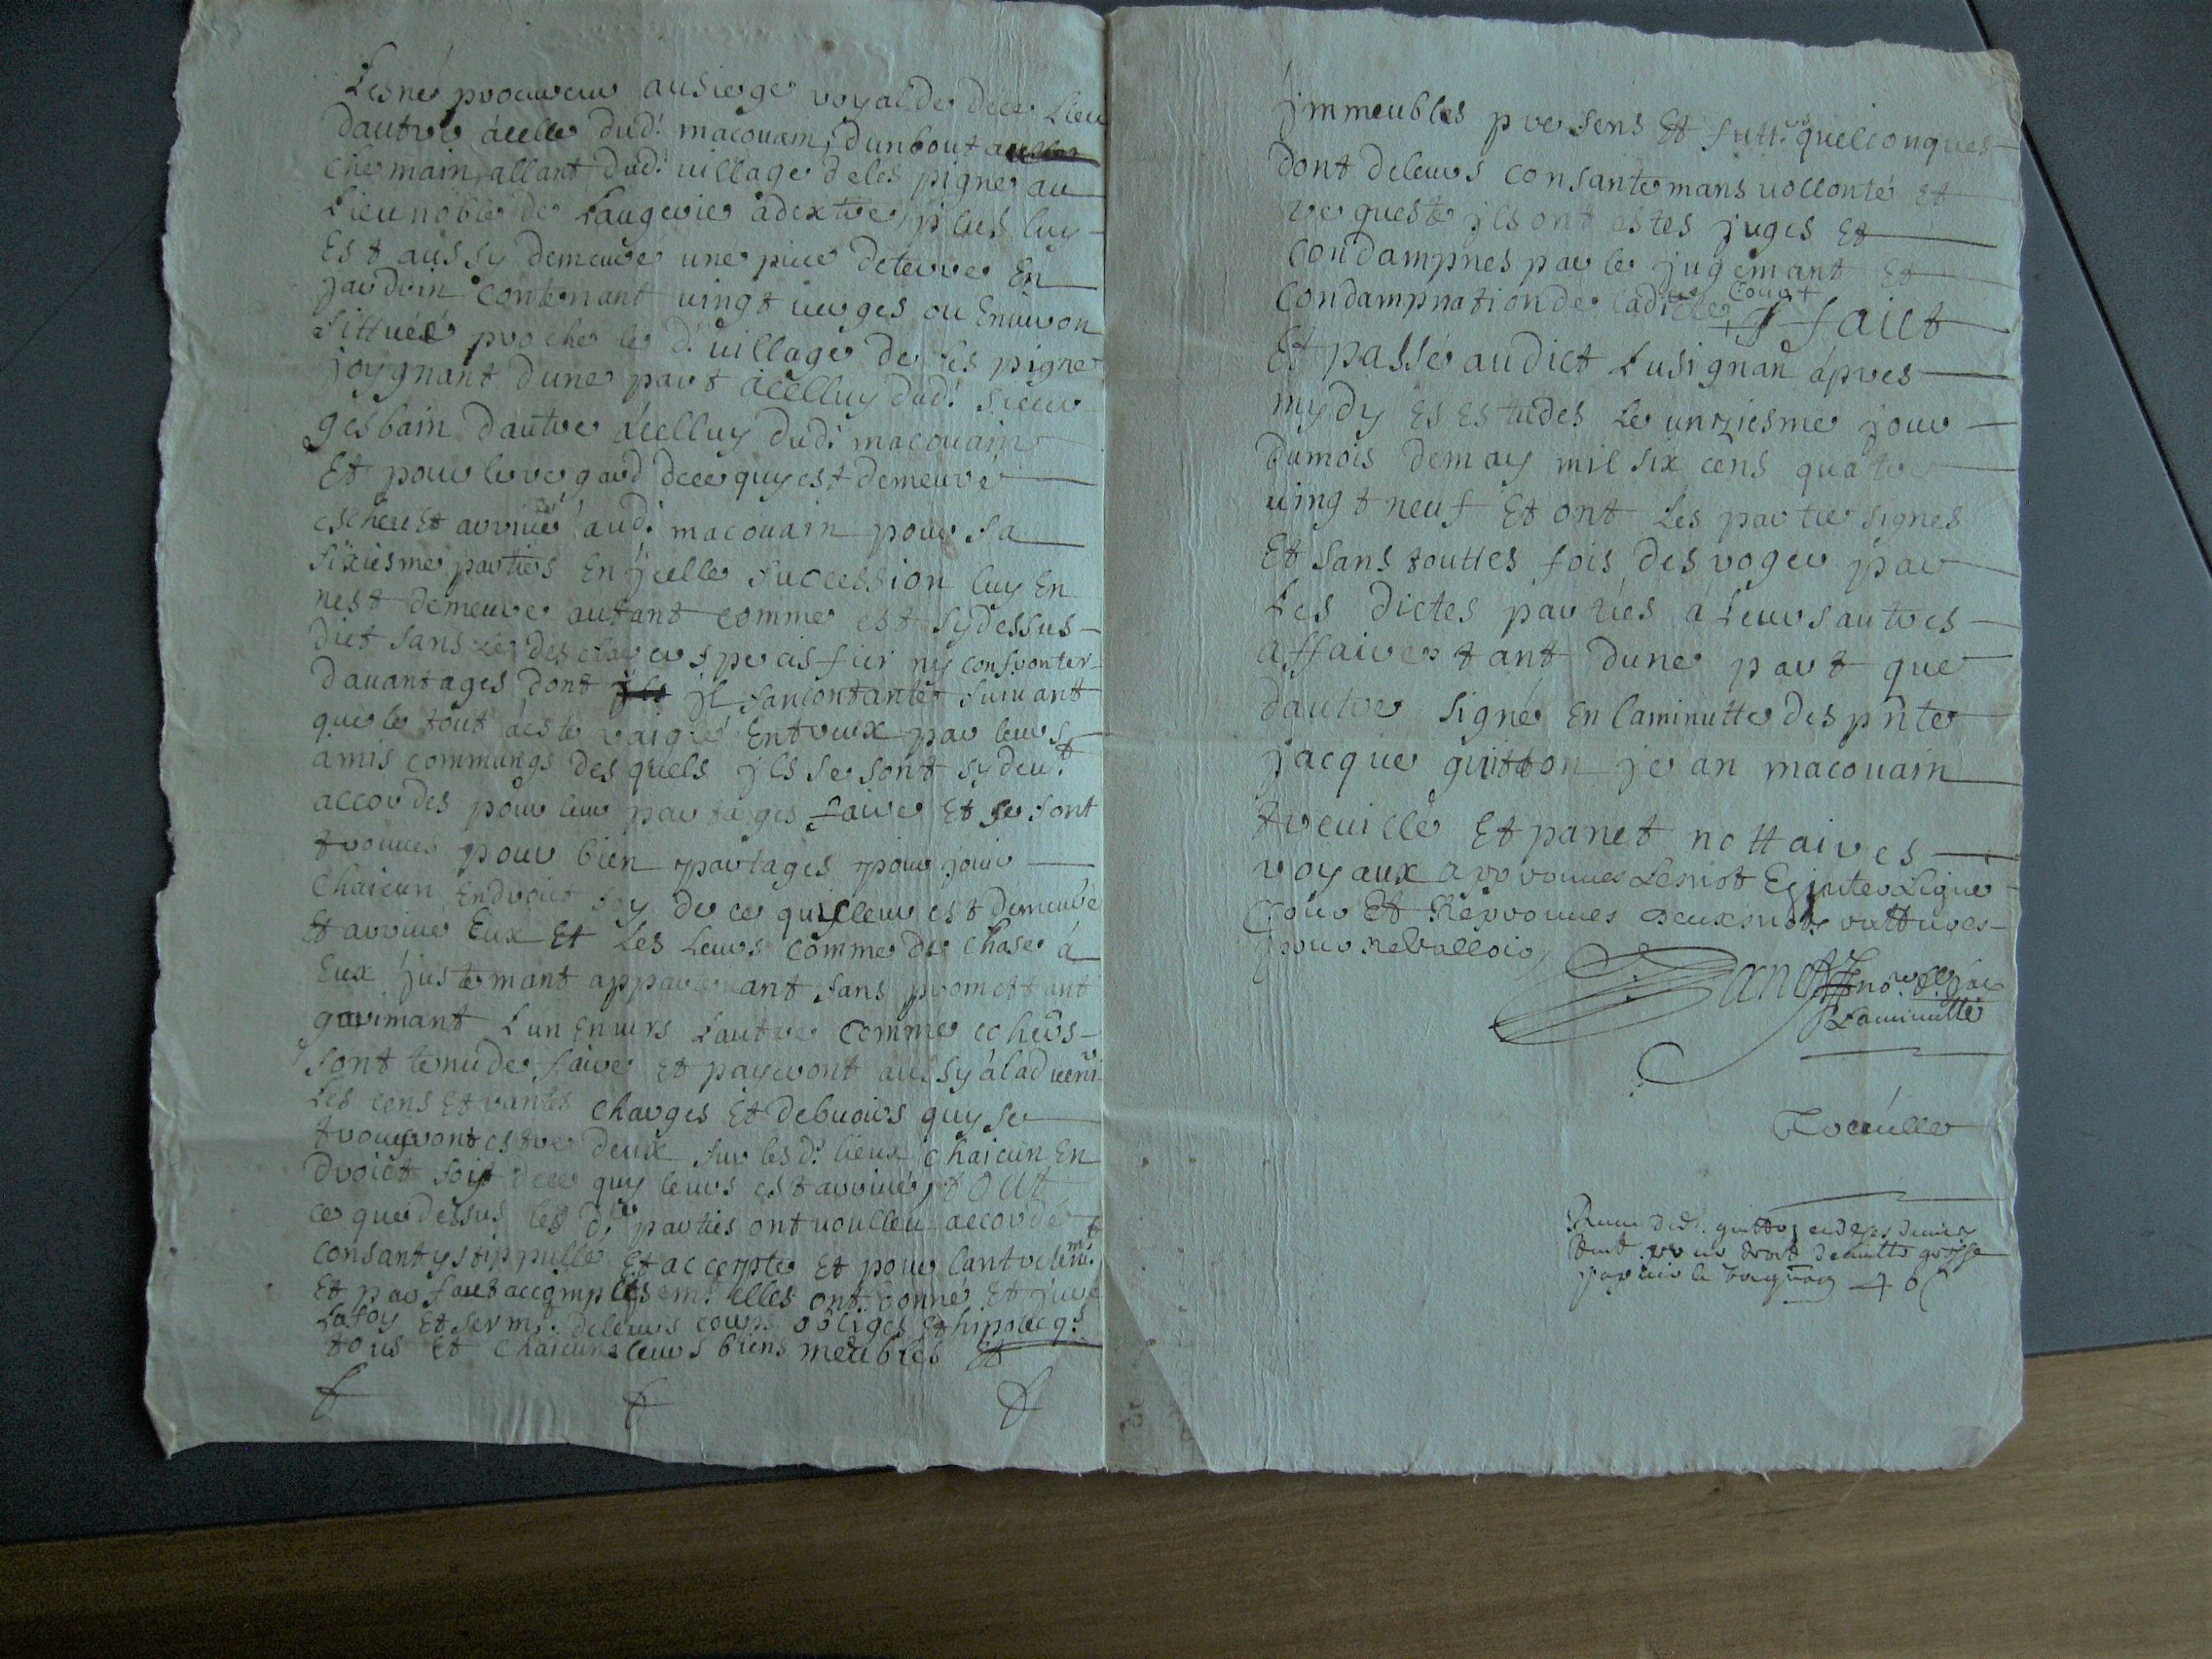 Lesné procureur au siege royal de dece Lieu
dautre a celle dud. macouain, dun bout au
chemain allant dud. village de les pigne au
Lieu noble de Laugerie a dextre, plus luy
Est aussy demeuré une piece de terre En
jardrin contenant vingt verges ou Enuiron
sittuéé proche le d. village de les pigne
joygnant dune part a celluy dud. sieur
gesbain dautre a celluy dud. macouain
Et pour le regard de ce quy est demeuré
escheu Et arriué aud. macouain pour sa
sixiesme parties En jcelle succession luy En
nest demeuré autant comme est sy dessus
dict sans le desclairer spescisfier ny confronter
dauantages dont jl san contante suiuant
que le tout a esté raiglé Entreux par leurs
amis commungs desquels jls se sont sy deut
accordes pour leur partages faire Et se sont
trouues pour bien partages pour jouir
Chaicun Endroict soy de ce quy leur est demeuré
Et arriué Eux Et Les Leurs comme de chase á
Eux justemant appartenant sans promettant
garimant Lun Enuers Lautre comme cohers
sont tenu de faire Et payeront aussy á laduenir
Les cens Et rantes charges Et debuoirs quy se
trouueront estre deux sur les d. lieux chaicun En
droict soy de ce quy leurs est arriué, tout
ce que dessus les d. parties ont voulleu accordé
consanty stippullé Et accepté Et pour lantretenemt
Et parfaict accomplissemt. elles ont donné Et juré
La foy Et sermt. de leurs corps obliges Et hipotecqs
tous Et chaicuns leurs biens meubles Et
jmmeubles presens Et futt. quelconques
dont de leurs consantemans vollonté Et
requeste jls ont estes juges Et
Condampnes par le jugemant Et
Condampnation de ladicte Cour faict
Et passé audict Lusignan apres
mydy Es Estudes Le unziesme jour
du mois de may mil six cens quatre
vingt neuf Et ont Les partie signes
Et sans touttes fois desroger par
Les dictes parties a Leurs autres
affaires tant dune part que
dautre signé En la minutte des pnte
jacque guitton jean macouain
treuillé Et panet nottaires
royaux approuues Le mot En interligne
Cour Et Reprouues deux mots rattures
pour ne Valloir
Panet nore. Rl.
La minutte
Treuille